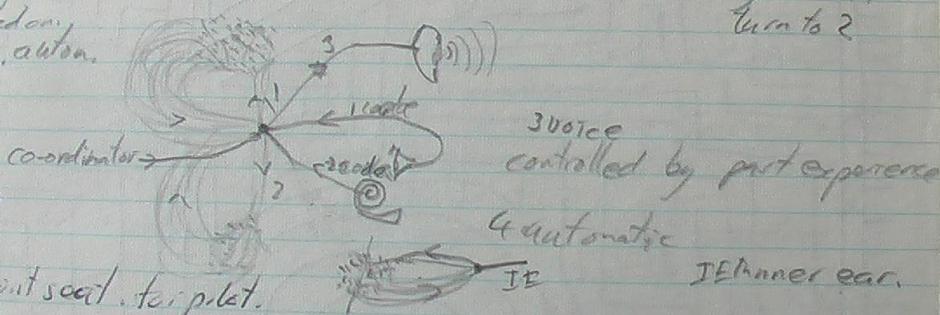 turn to 2
auton.
3
1
1 code
3 voice
co-ordinator
2 code
controlled by part experience
2
4 automatic
IE
IE inner ear.
seat. for pilot.